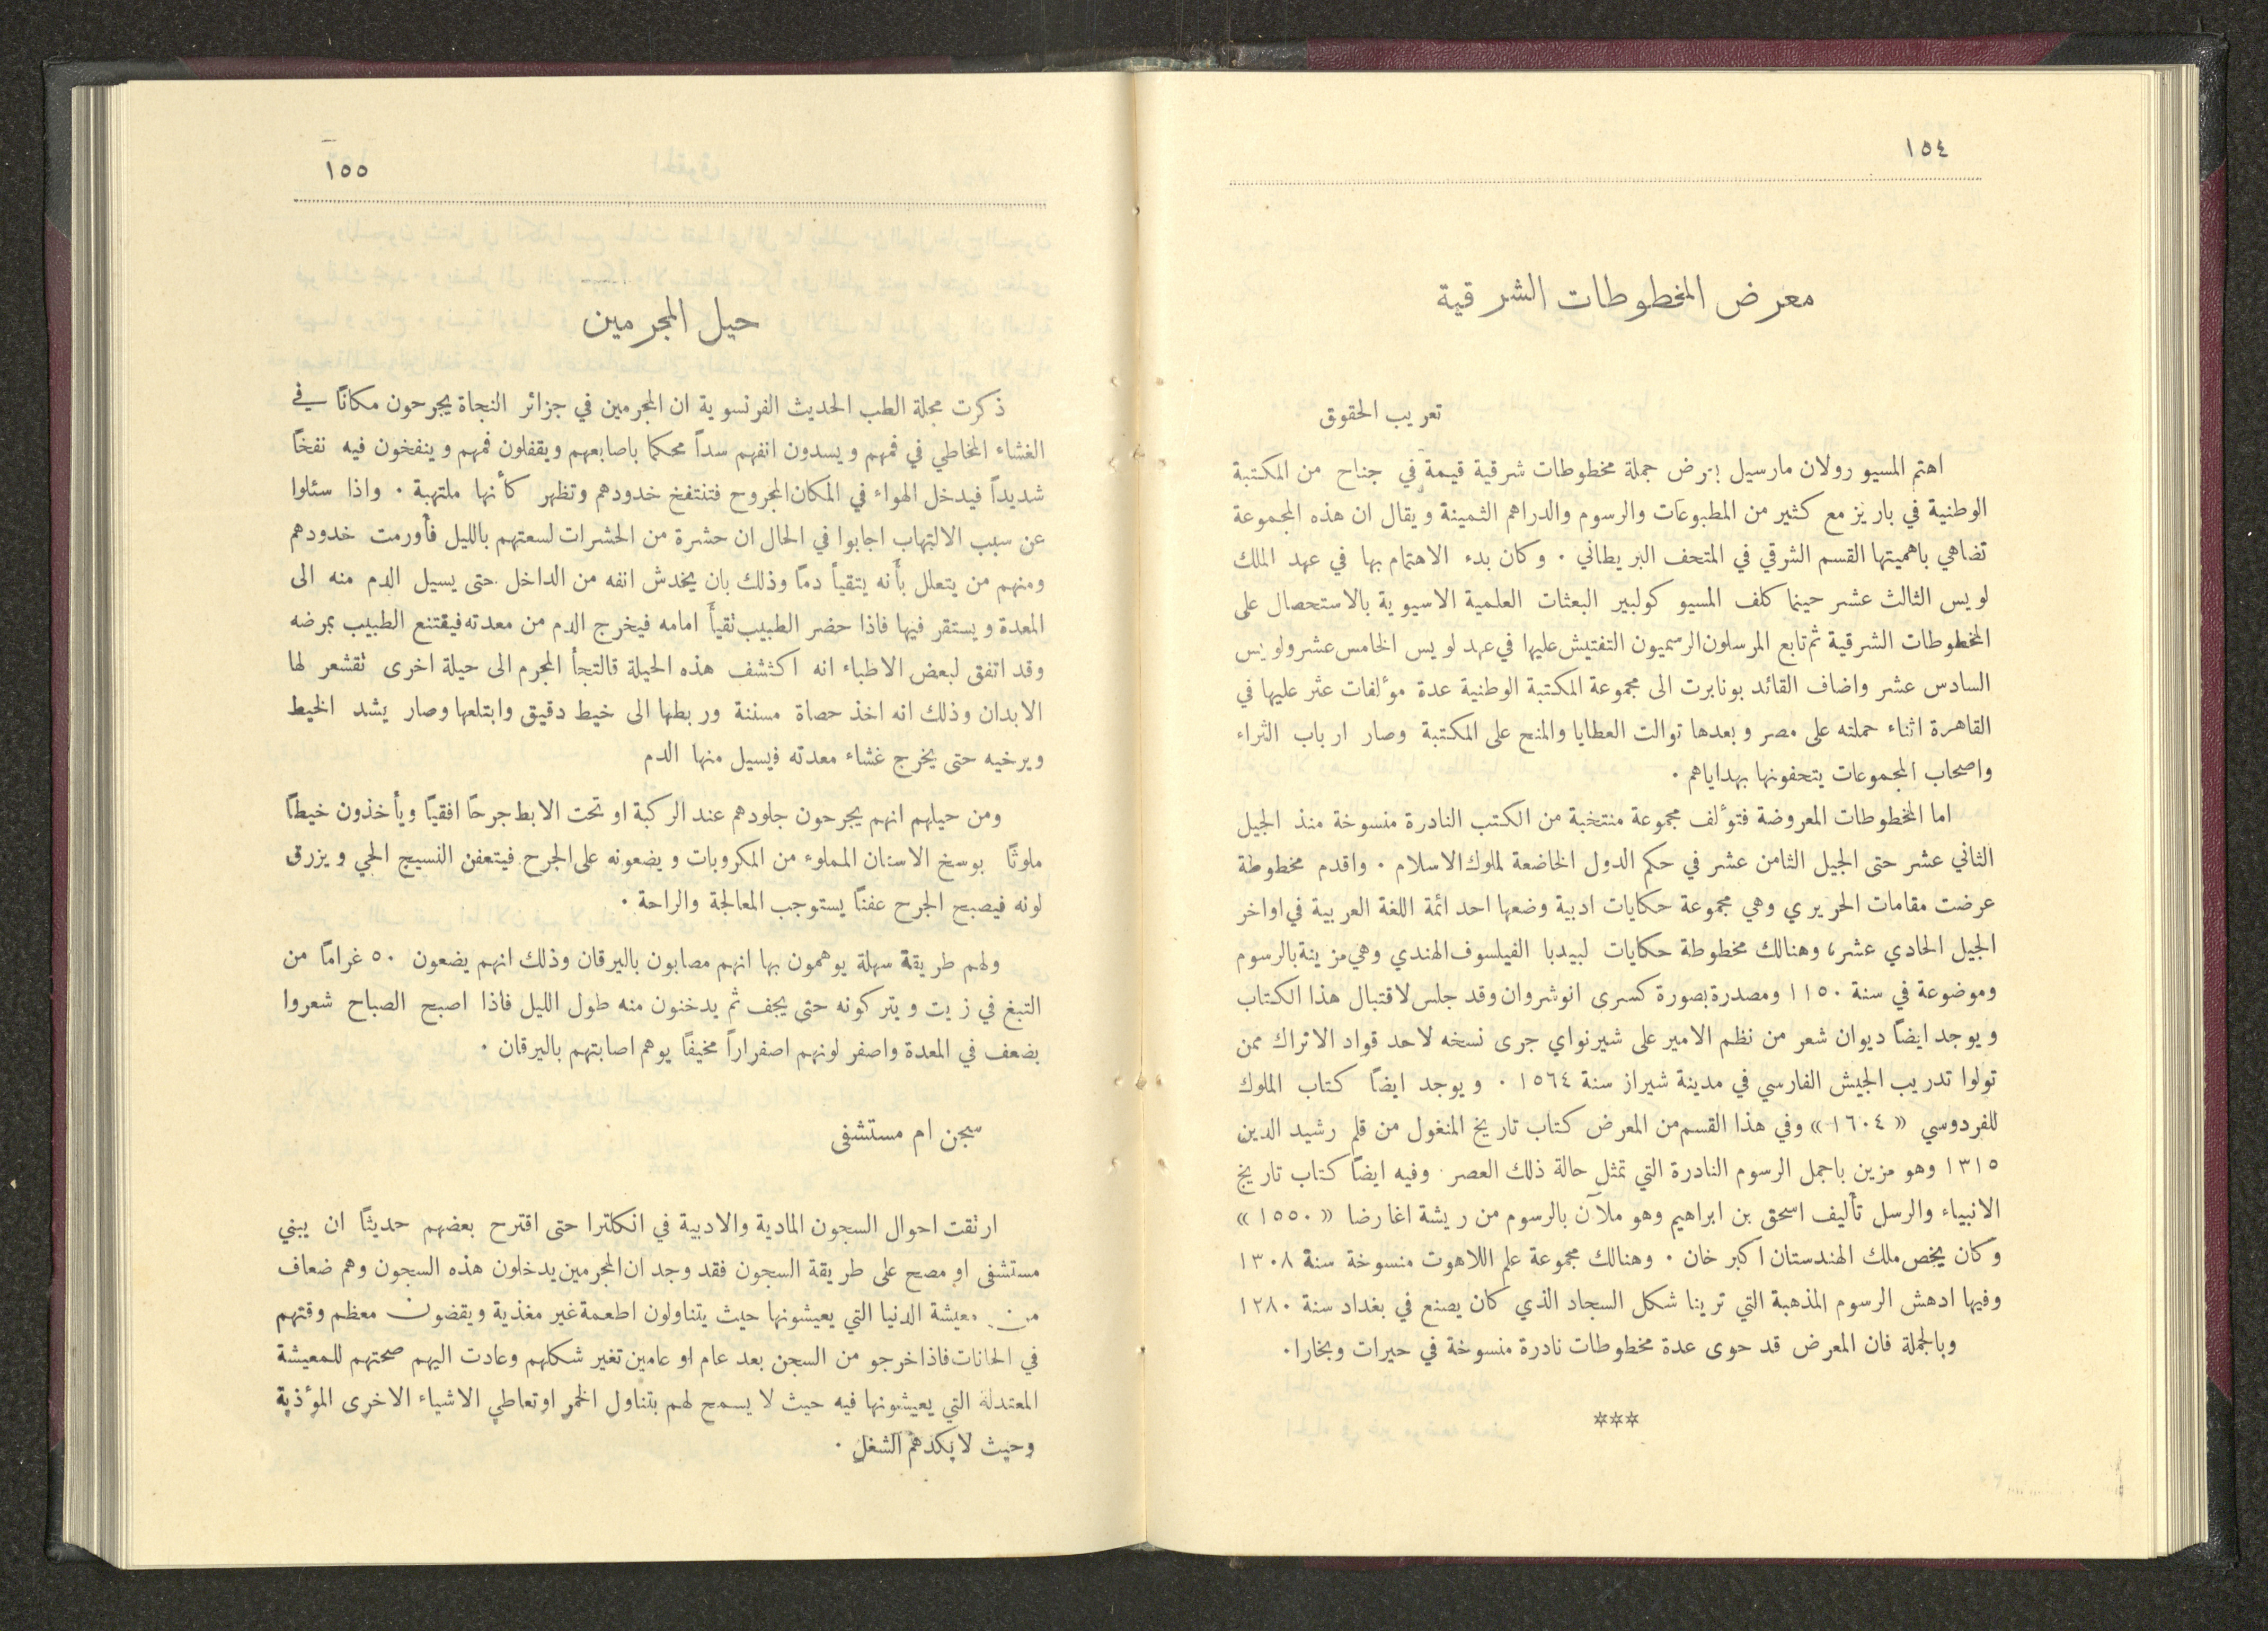 ١٥٤
معرض المخطوطات الشرقية
تعريب الحقوق
اهتم المسيو رولان مارسيل بعرض جملة مخطوطات شرقية قيمة في جناح من المكتبة
الوطنية في باريز مع كثير من المطبوعات والرسوم والدراهم الثمينة ويقال ان هذه المجموعة
تضاهي باهميتها القسم الشرقي في المتحف البريطاني . وكان بدء الاهتمام بها في عهد الملك
لويس الثالث عشر حينما كلف المسيو كولبير البعثات العلمية الاسيوية بالاستحصال على
المخطوطات الشرقية ثم تابع المرسلون الرسميون التفتيش عليها في عهد لويس الخامس عشر ولويس
السادس عشر واضاف القائد بونابرت الى مجموعة المكتبة الوطنية عدة مؤلفات عثر عليها في
القاهرة اثناء حملته على مصر وبعدها توالت العطايا والمنح على المكتبة وصار ارباب الثراء
واصحاب المجموعات يتحفونها بهداياهم .
اما المخطوطات المعروضة فتؤلف مجموعة منتخبة من الكتب النادرة منسوخة منذ الجيل
الثاني عشر حتى الجيل الثامن عشر في حكم الدول الخاضعة لملوك الاسلام . واقدم مخطوطة
عرضت مقامات الحريري وهي مجموعة حكايات ادبية وضعها احد ائمة اللغة العربية في اواخر
الجيل الحادي عشر، وهنالك مخطوطة حكايات لبيدبا الفيلسوف الهندي وهي مزينة بالرسوم
وموضوعة في سنة ١١٥٠ ومصدرة بصورة كسرى انوشروان وقد جلس لاقتبال هذا الكتاب
ويوجد ايضاً ديوان شعر من نظم الامير على شيرنواي جرى نسخه لاحد قواد الاتراك ممن
تولوا تدريب الجيش الفارسي في مدينة شيراز سنة ١٥٦٤ . ويوجد ايضاً كتاب الملوك
للفردوسي « ١٦٠٤ » وفي هذا القسم من المعرض كتاب تاريخ المنغول من قلم رشيد الدين
١٣١٥ وهو مزين باجمل الرسوم النادرة التي تمثل حالة ذلك العصر . وفيه ايضاً كتاب تاريخ
الانبياء والرسل تأليف اسحق بن ابراهيم وهو ملآن بالرسوم من ريشة اغا رضا « ١٥٥٠ »
وكان يخص ملك الهندستان اكبر خان . وهنالك مجموعة علم اللاهوت منسوخة سنة ١٣٠٨
وفيها ادهش الرسوم المذهبة التي ترينا شكل السجاد الذي كان يصنع في بغداد سنة ١٢٨٠
وبالجملة فان المعرض قد حوى عدة مخطوطات نادرة منسوخة في حيرات وبخارا.
***
١٥٥
حيل المجرمين
ذكرت مجلة الطب الحديث الفرنسوية ان المجرمين في جزائر النجاة يجرحون مكاناً في
الغشاء المخاطي في فمهم ويسدون انفهم سداً محكما باصابعهم ويقفلون فمهم وينفخون فيه نفخاً
شديداً فيدخل الهواء في المكان المجروح فتنتفخ خدودهم وتظهر كأنها ملتهبة . واذا سئلوا
عن سبب الالتهاب اجابوا في الحال ان حشرة من الحشرات لسعتهم بالليل فأورمت خدودهم
ومنهم من يتعلل بأنه يتقيأ دماً وذلك بان يخدش انفه من الداخل حتى يسيل الدم منه الى
المعدة ويستقر فيها فاذا حضر الطبيب تقيأ امامه فيخرج الدم من معدته فيقتنع الطبيب بمرضه
وقد اتفق لبعض الاطباء انه اكتشف هذه الحيلة قالتجأ المجرم الى حيلة اخرى تقشعر لها
الابدان وذلك انه اخذ حصاة مسننة وربطها الى خيط دقيق وابتلعها وصار يشد الخيط
ويرخيه حتى يخرج غشاء معدته فيسيل منها الدم
ومن حيلهم انهم يجرحون جلودهم عند الركبة او تحت الابط جرحاً افقياً ويأخذون خيطاً
ملوثاً بوسخ الاسنان المملوء من المكروبات ويضعونه على الجرح فيتعفن النسيج الحي ويزرق
لونه فيصبح الجرح عفناً يستوجب المعالجة والراحة .
ولهم طريقة سهلة يوهمون بها انهم مصابون باليرقان وذلك انهم يضعون ٥٠ غراماً من
التبغ في زيت ويتركونه حتى يجف ثم يدخنون منه طول الليل فاذا اصبح الصباح شعروا
بضعف في المعدة واصفر لونهم اصفراراً مخيفاً يوهم اصابتهم باليرقان .
سجن ام مستشفى
ارتقت احوال السجون المادية والادبية في انكلترا حتى اقترح بعضهم حديثاً ان يبني
مستشفى او مصح على طريقة السجون فقد وجد ان المجرمين يدخلون هذه السجون وهم ضعاف
من معيشة الدنيا التي يعيشونها حيث يتناولون اطعمة غير مغذية ويقضون معظم وقتهم
في الحانات فاذا خرجو من السجن بعد عام او عامين تغير شكلهم وعادت اليهم صحتهم للمعيشة
المعتدلة التي يعيشونها فيه حيث لا يسمح لهم بتناول الخمر او تعاطي الاشياء الاخرى المؤذية
وحيث لا يكدهم الشغل .